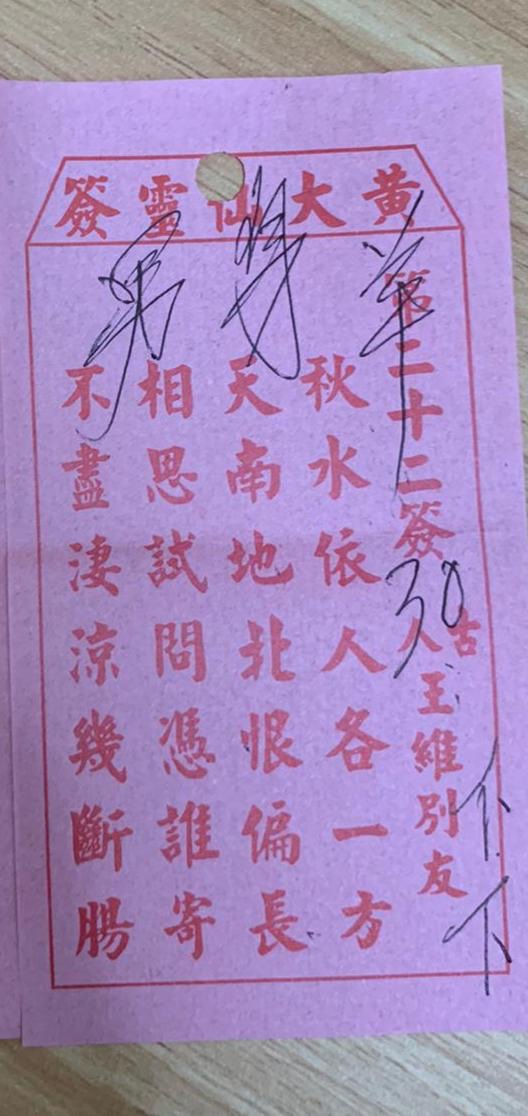 黃大仙靈簽
第二十二簽 古人王維別友
秋水依人各一方
天南地北恨偏長
相思試問憑誰寄
不盡淒涼幾斷腸
30
下下